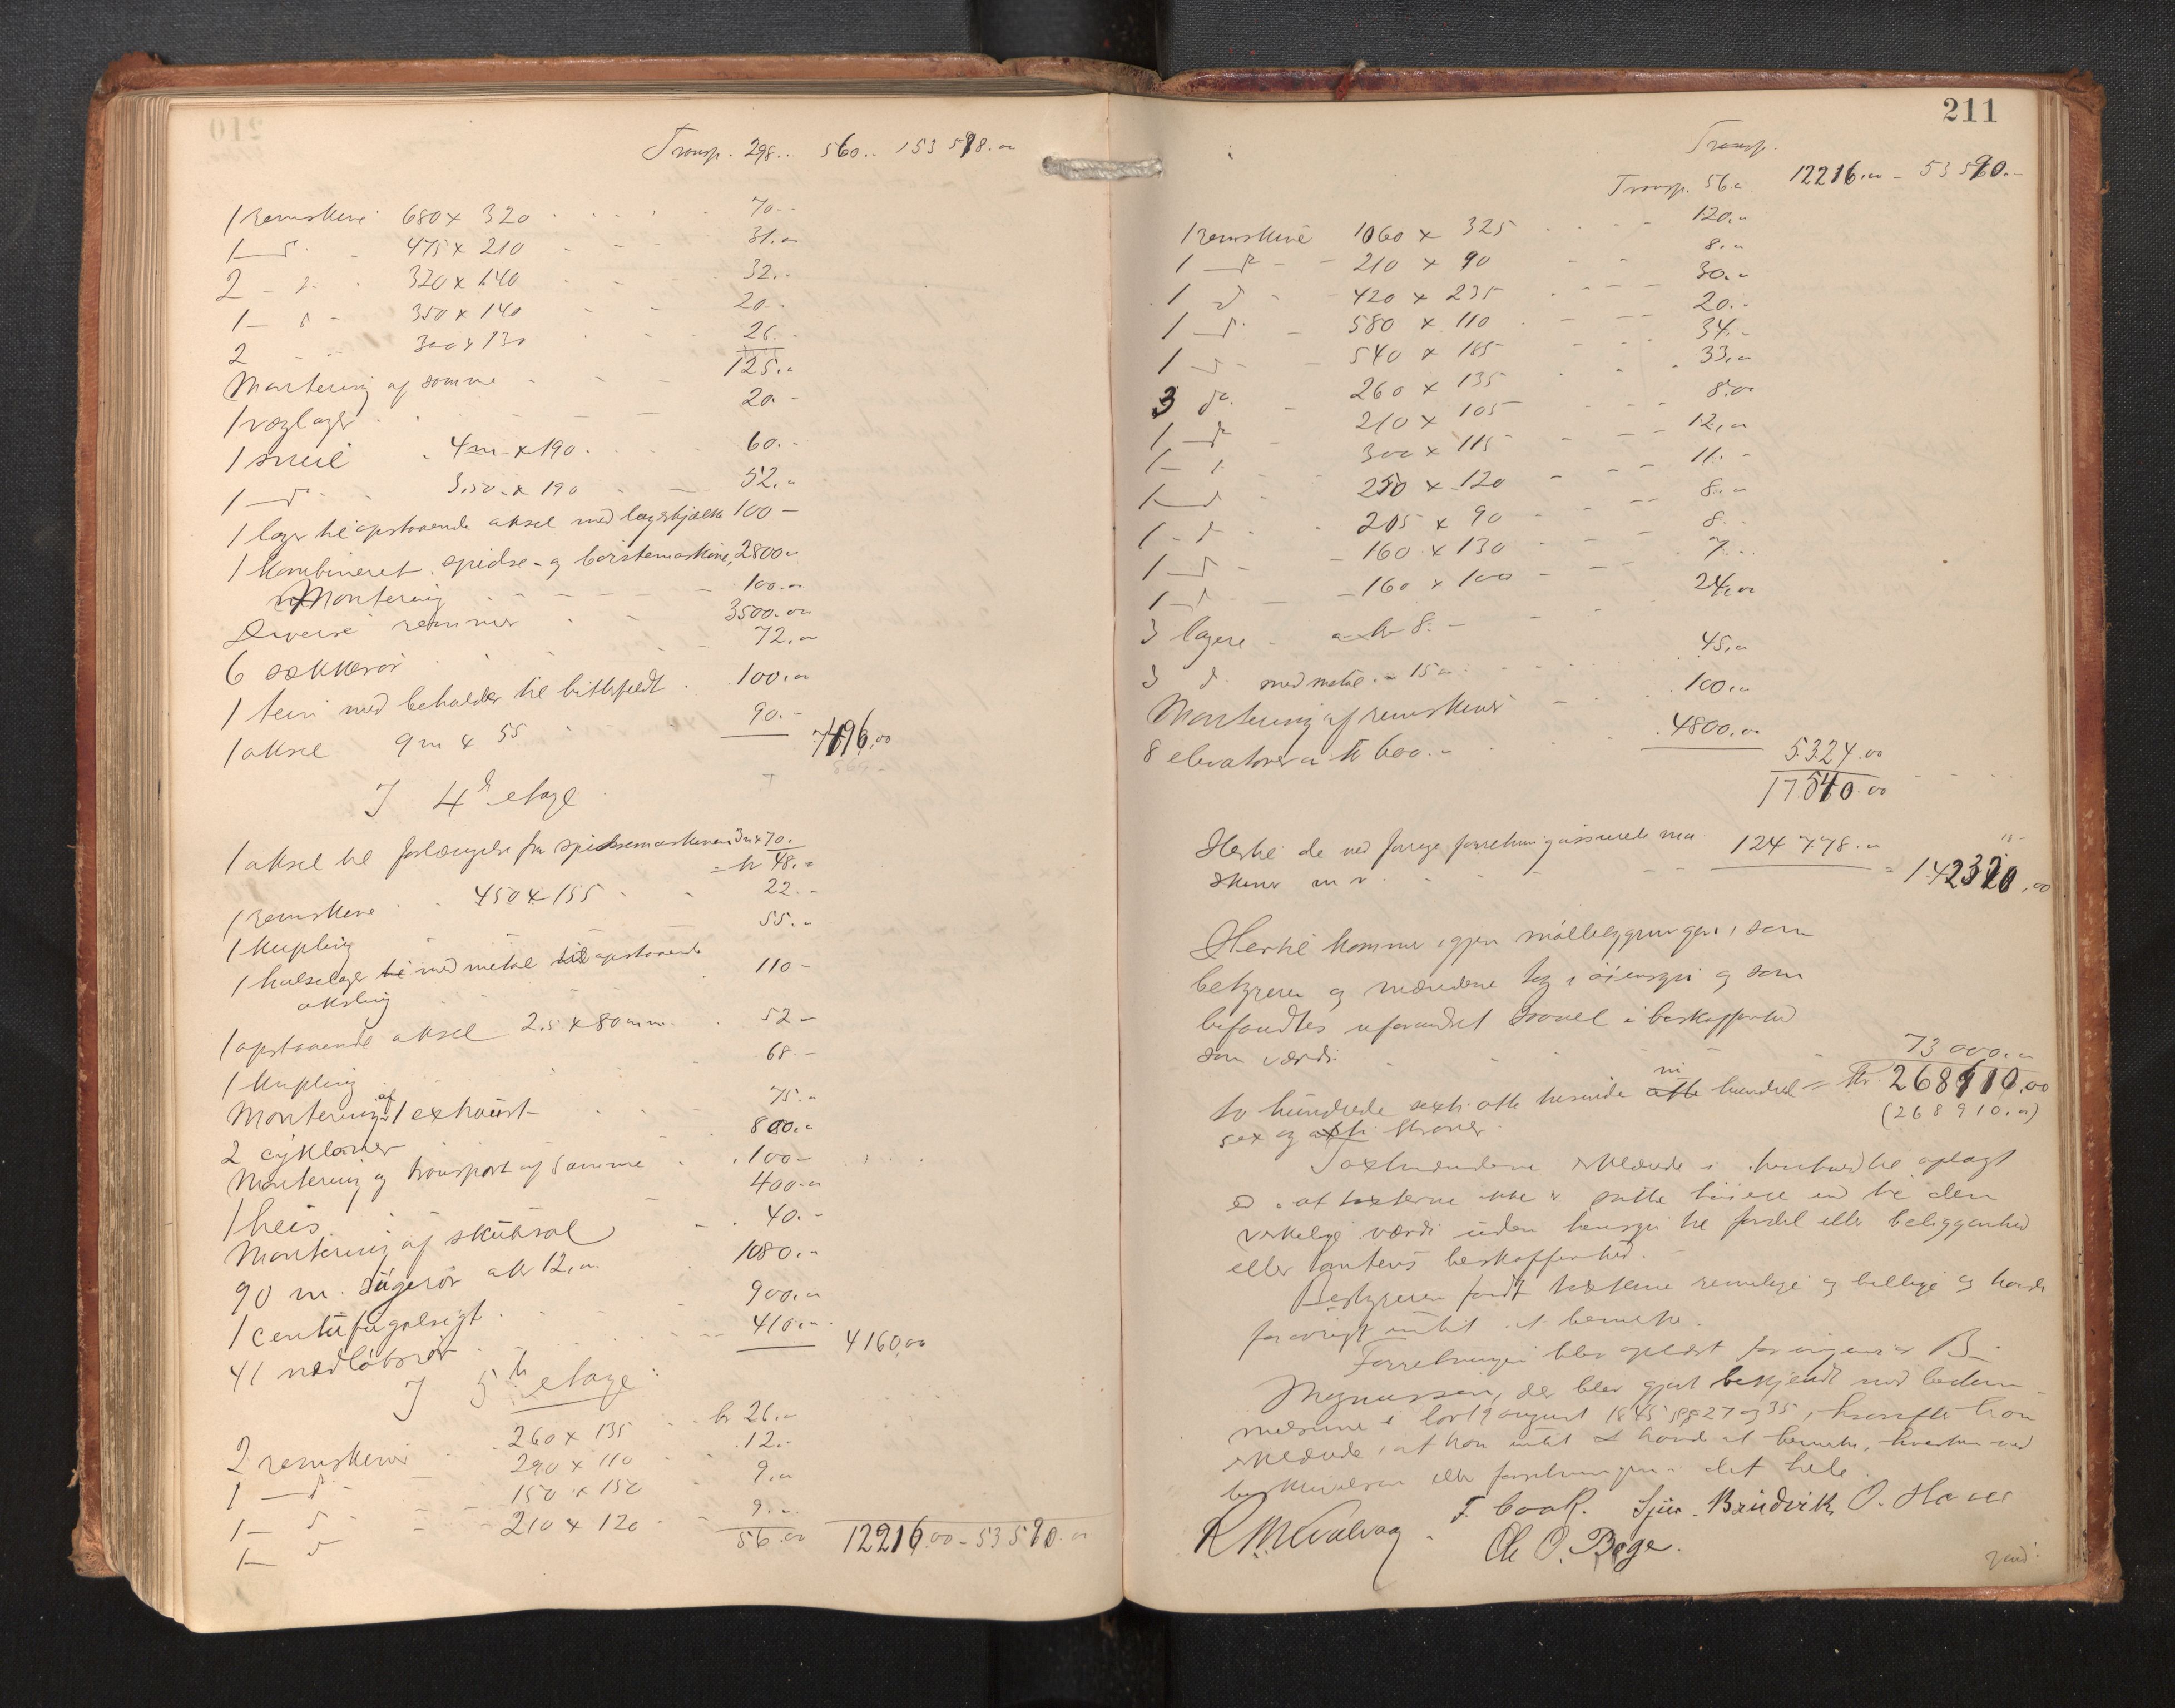 Transp. 298.. 560.. 153 598.00
1 remskive 680 x 320 70..
1 do 475 x 210 31.00
2 - 320 x 140 32..
1 - 350 x 140 20..
2 300 x 130 26..
Montering af samme 125.00
1 væglager 20.-
1 sneil 4m x 190. 60.-
1 do 3.50 x 190 52.00
1 lager til opstaaende aksel med lagerbjælke 100 -
1 kombineret spidse- og børstemaskine, 2800.00
Montering 100.00
Diverse remmer 3500.00
6 sækkerør 72.00
1 med beholder til 100.00
1 aksel 9 m x 55 90.- 7496.00
I 4de etage
1 aksel til forlængelse fra spidsemaskinen 3m x 70.
kr 48.00
1 remskive 450 x 155 22.-
1 kupling 55.00
1 halslager til med metal til opstaaende 110 -
aksling
1 opstaaende aksel 2.5 x 80 mm. 52 -
1 kupling 68 -
Montering af 1 exhaust 75.-
2 cykloner 800.00
Montering og transport af samme 100 -
1 heis 400.00
Montering af 40.-
90 m. sugerør a kr 12,00 1080.00
1 centrifugalsigt 900.00
41 nedløbsrør 410.00 4160,00
I 5te etage:
2 remskiver 260 x 135 kr 26.00
1 do 290 x 110 12.-
1 - do 150 x 150 9.00
1 - do 210 x 120 9.00
56.00 12216.00 - 53 590.00
211
Transp.
Transp. 56.00 12216.00 - 53 590.-
1 remskive 1060 x 325 120.-
1 do 210 x 90 8.00
1 do 420 x 235 30.-
1 do 580 x 110 20.-
1 do 540 x 185 34.-
3 do 260 x 135 33.00
1 do 210 x 105 8.00
1 - 300 x 115 12,00
1 do 250 x 120 11.-
1 - do 205 x 90 8.00
1 do 160 x 130 8.-
1 do 160 x 100 7..
3 lagere a kr 8.- 24,00
3 do med metal 15.00 45,00
Montering af remskiver 100.00
8 elevatorer a kr 600.00 4800.00 5324.00
17540.00
Hertil de ved forrige forretning assurerede ma 124 778.00
skiner m v. = 142320,00
Hertil kommer igjen møllebygningen, som
bestyreren og mændene tog i øiensyn og som
befandtes uforandret saavel i beskaffenhed
som værdi. 73 000.00
to hundrede sexti otte tusinde otte ni hundrede = Kr. 268910.00
sex og otti kroner. (268 910.00)
Taxtmændene erklærede i henhold til aflagt
ed, at taxterne ikke er satte høiere end til den
virkelige værdi uden hensyn til fordel eller beliggenhed
eller tomtens beskaffenhed.
Bestyreren fandt taxterne rimelige og billige og havde
forøvrigt intet at bemerke.
Forretningen blev oplæst for ingeniør B.
Magnussen, der blev gjort bekjendt med bestem-
melserne i lov 19 august 1845 §§ 27 og 35, hvorefter han
erklærede, at han intet havde at bemerke, hverken ved
beskrivelsen eller forretningen i det hele.
F. Cook. Sjur Brudvik O. Hauer
Ole O. Bøge.